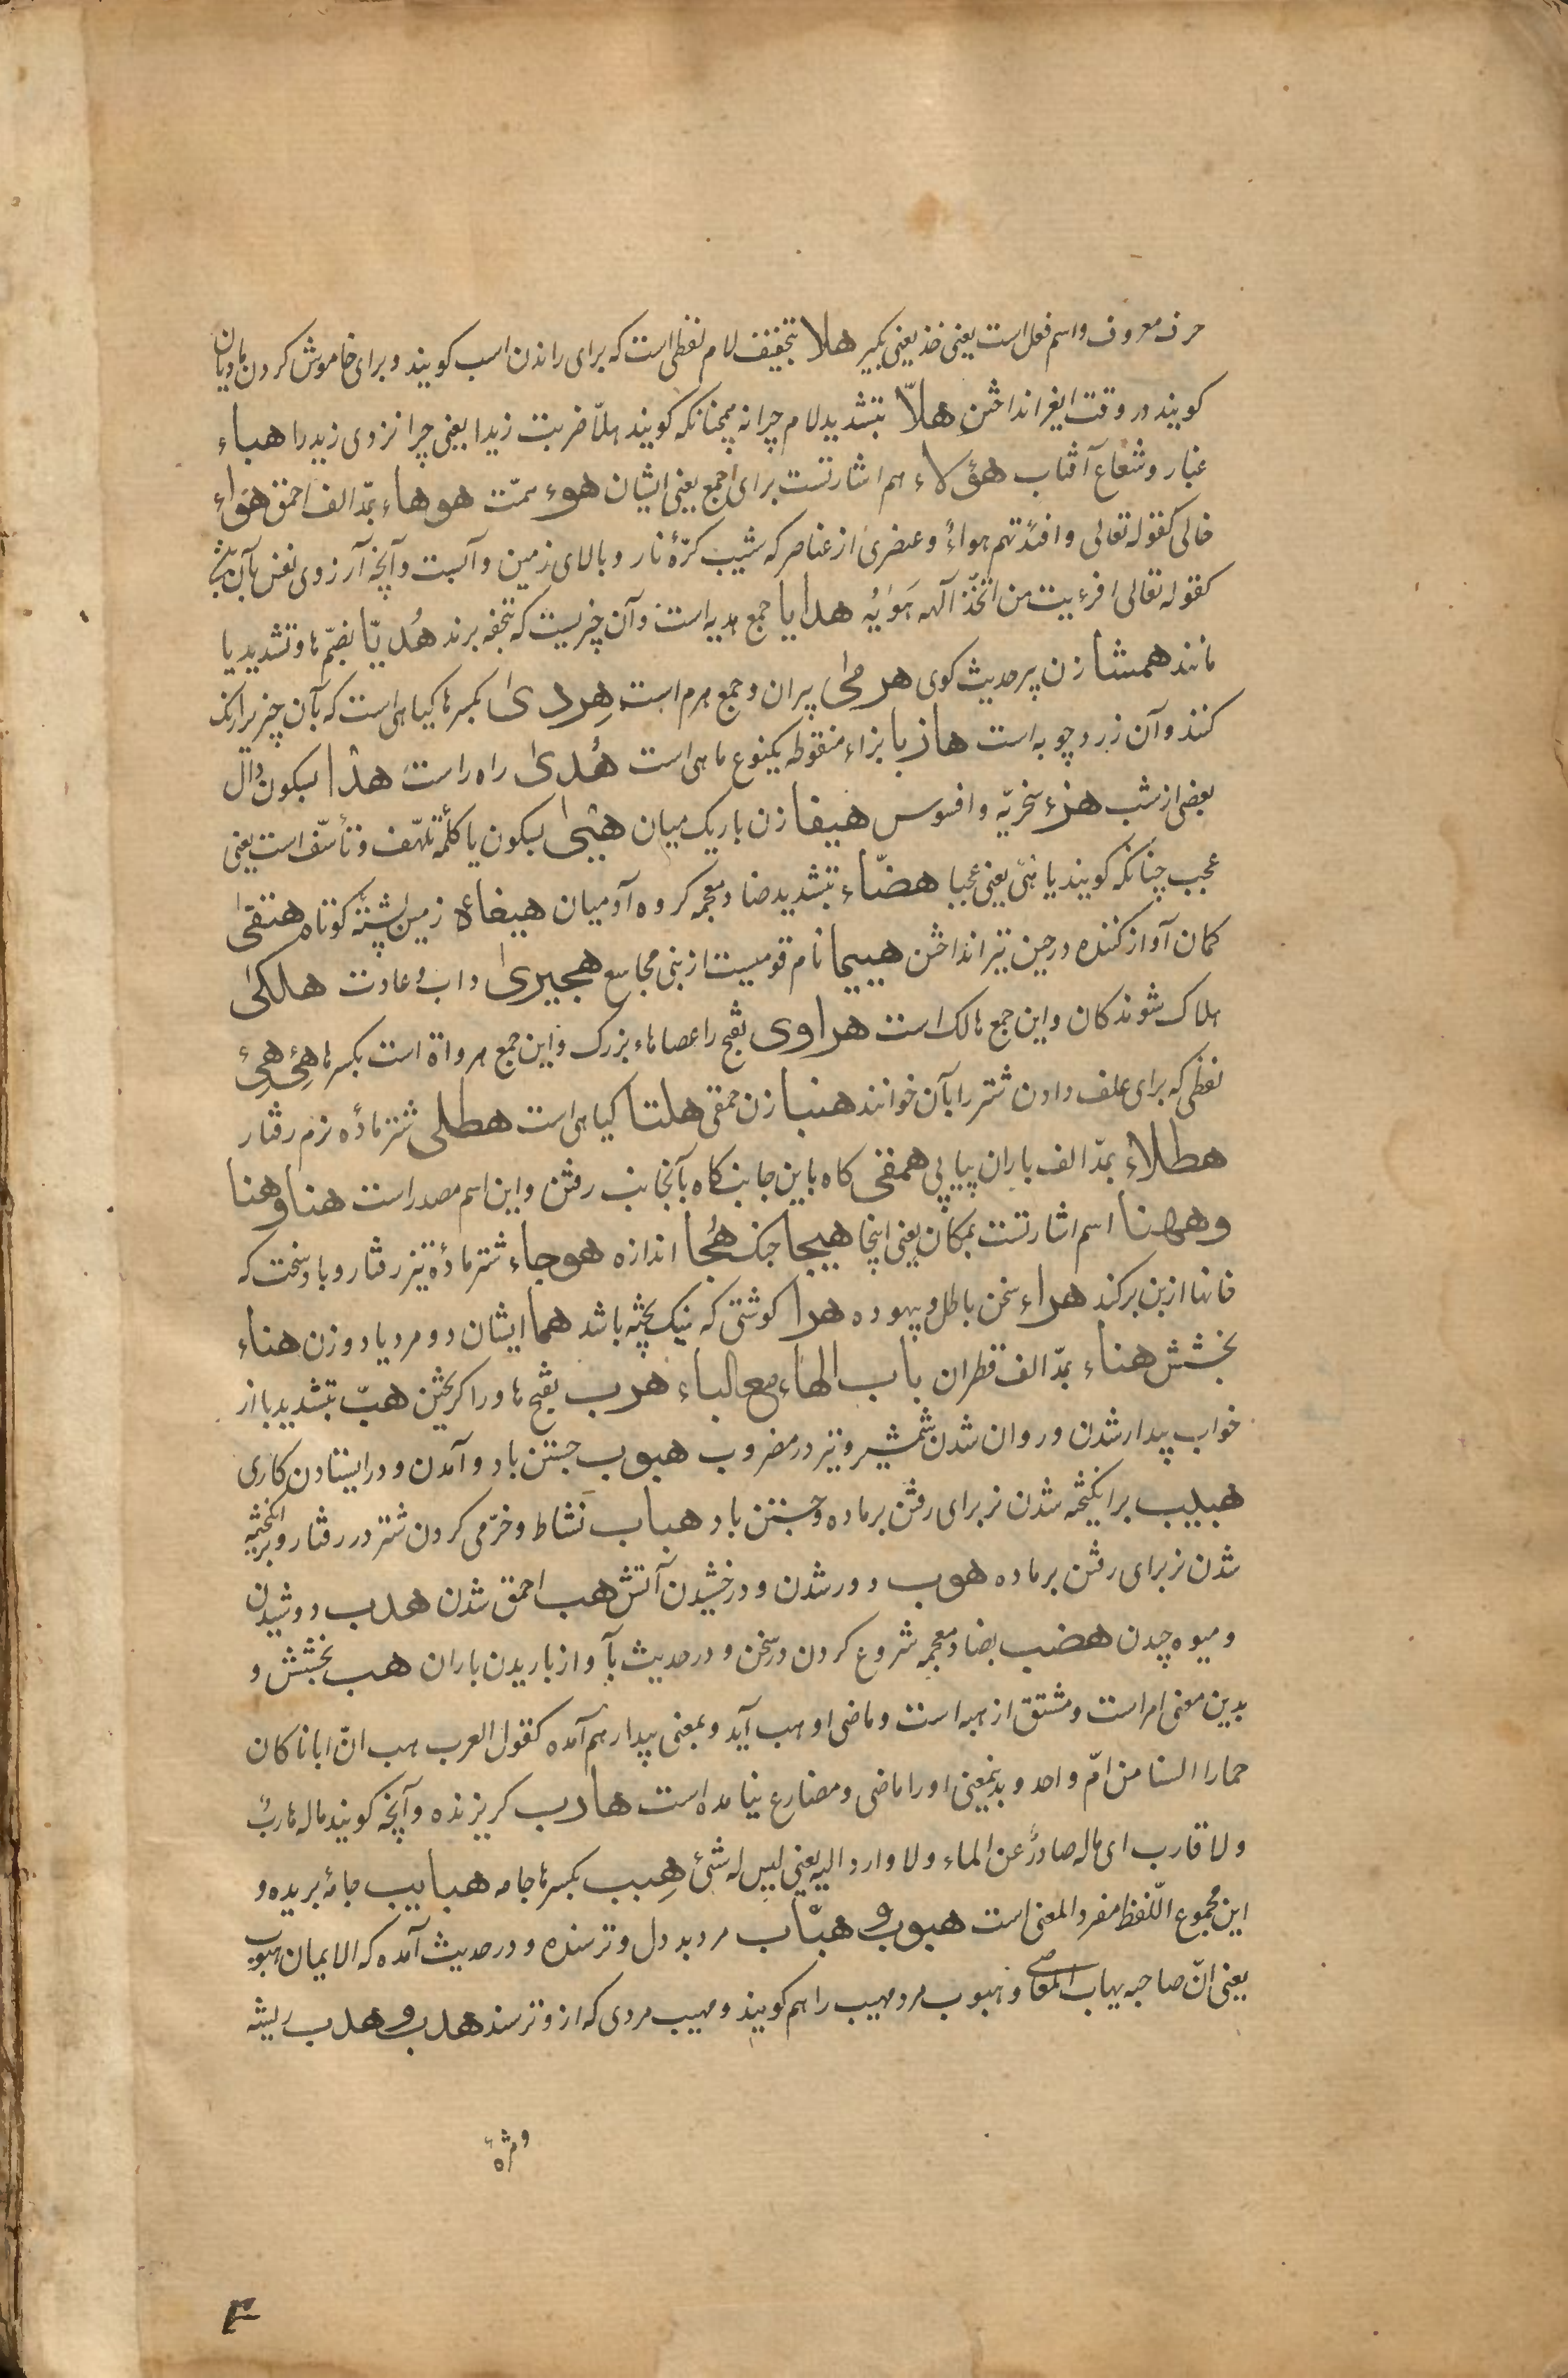 حرف معروف و اسم فعل است یعنی خذ یعنی بکیر هلا بتخفیف لام لفظی است که برای راندن اسب کویند و برای خاموش کردن مادیان
کویند در وقت ایغر انداختن هلّا بتشدید لام چرا نه همچنانکه کویند هلّا ضربت زیدا یعنی چرا نزدی زید را هباء
غبار و شعاع آفتاب هؤلاء هم اشارتست برای جمع یعنی ایشان هوء همّت هوهاء بمدّ الف احمق هواء
خالی کقوله تعالی وافئدتهم هواءٌ و عنصری از عناصر که شیب کرّهٔ نار و بالای زمین و آبست و آنچه آرزوی نفس بآن باشد
کقوله تعالی افرءیت من اتّخذ آلهه هَوٰیهُ هدایا جمع هدیه است و آن چیزیست که بتحفه برند هُدیّا بضمّ ها و تشدید یا
مانند همشا زن پر حدیث کوی هرمی پیران و جمع هرم است هِردی بکسر ها کیاهی است که بآن چیز برا رنک
کنند و آن زردچوبه است هازبا بزاء منقوطه یکنوع ماهی است هُدی راه راست هدأ بسکون دال
بعضی از شب هزء سخریّه و افسوس هیفا زن باریک میان هیئی بسکون یا کلمهٔ تلهّف و تأسّف است یعنی
عجب چنانکه کویند یا هئی یعنی عجبا هضّاء بتشدید ضاد معجمه کروه آدمیان هیغاء زمین پشتهٔ کوتاه هتفی
کمان آواز کننده در حین تیر انداختن هییما نام قومیست از بنی مجاشع هجیری داب و عادت هلکی
هلاک شوندکان و این جمع هالک است هراوی بفتح را عصاهاء بزرک و این جمع هرواة است بکسر ها هِئ هِئ
لفظی که برای علف دادن شتر را بآن خوانند هنبا زن حمقی هلتا کیاهی است هطلی شتر مادهٔ نرم رفتار
هطلاء بمدّ الف باران پیاپی همقی کاه باین جانب کاه بآنجانب رفتن و این اسم مصدر است هنا و هنا
و ههنا اسم اشارتست بمکان یعنی اینجا هیجا جنک هُجا اندازه هوجاء شتر مادهٔ تیز رفتار و باد سخت که
خانها از بن برکند هراء سخن باطل و بیهوده هرا کوشتی که نیک پخته باشد هما ایشان دو مرد یا دو زن هناء
بخشش هناء بمدّ الف قطران باب الهاء مع الباء هرب بفتح ها و را کریختن هبّ بتشدید با از
خواب بیدار شدن و روان شدن شمشیر و تیز در مضروب هبوب جستن باد و آمدن و در ایستادن کاری
هبیب برانکیخته شدن نر برای رفتن بر ماده و جستن باد هباب نشاط و خرّمی کردن شتر در رفتار و برانکیخته
شدن نر برای رفتن بر ماده هوب دور شدن و درخشیدن آتش هب احمق شدن هدب دوشیدن
و میوه چیدن هضب بضاد معجمه شروع کردن در سخن و در حدیث بآواز باریدن باران هب بخشش و
بدین معنی امر است و مشتق از هبه است و ماضی او وهب آید و بمعنی پندار هم آمده کقول العرب هب انّ ابانا کان
حمارا السنا من امّ واحد و بدینمعنی او را ماضی و مضارع نیامده است هارب کریزنده و آنچه کویند ماله هاربٌ
ولا قارب ای ماله صادرٌ عن الماء ولا وارد الیه یعنی لیس له شئ هِبب بکسر ها جامه هبایب جامهٔ بریده و
این مجموع اللّفظ مفرد المعنی است هبوب و هبّاب مرد بد دل و ترسنده و در حدیث آمده که الایمان هبوب
یعنی انّ صاحبه یهاب المعاصی و هبوب مرد مهیب را هم کویند و مهیب مردی که ازو ترسند هدب و هدب ریشه
و مژهٔ